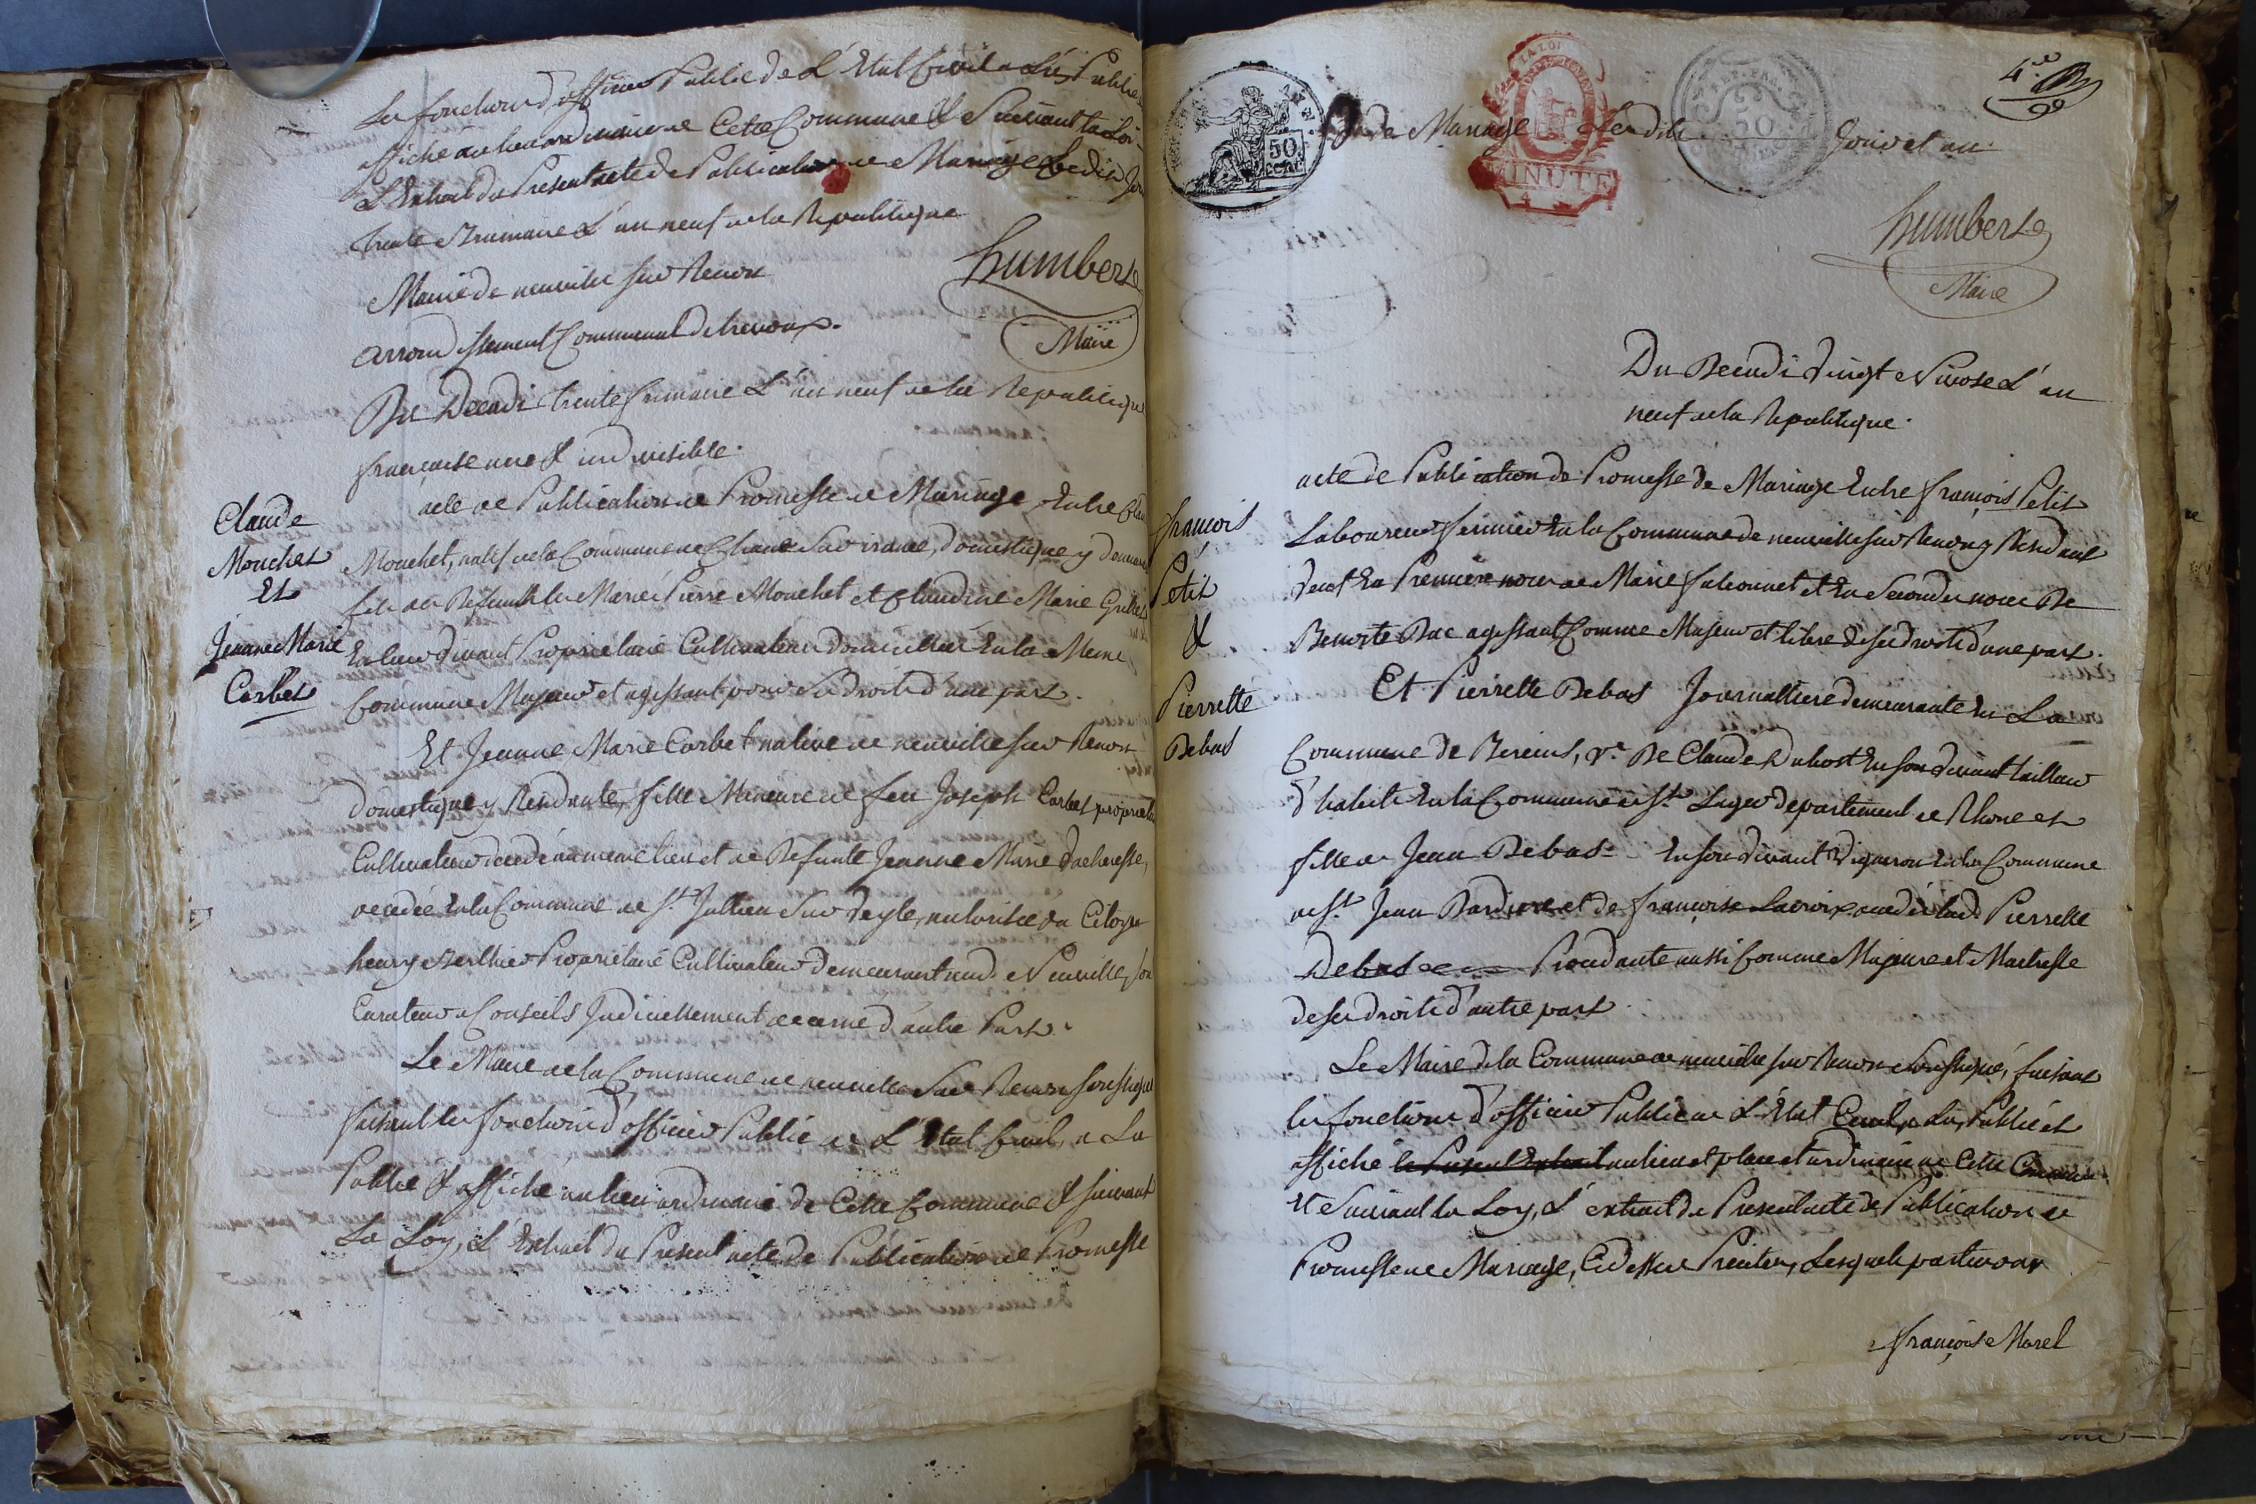 Les fonctions d'officier Public de L'Etat Civil a Lû, Publié
affiché au lieu ordinaire de Cette Commune & Suivant la Loi
L'Extrait du Present acte de Publication de Mariage Ledit Jour
trente Brumaire L'an neuf de la Republique
humbert
Maire
Mairie de neuville sur Renon
arrondissement Communal de trevoux.
Du Decadi trente frimaire L'an neuf de la Republique
françaisse une & indivisible.
Claude
Mouchet
Et
Jeanne Marie
Corbet
acte de Publication de Promesse de Mariage Entre Claude
Mouchet, natif de la Commune de Chane Sur domestique y demeurant
fils des Defunts les Mariés Pierre Mouchet et Claudine Marie
En leur vivant Proprietaire Cultivateur domiciliés En la Meme
Commune Majeur et agissant pour Ses droits d'une part.
Et Jeanne Marie Corbet native de neuville sur Renon
domestique y Residante, fille Mineure de feu Joseph Corbet proprietaire
Cultivateur decedé au meme lieu et de Defunte Jeanne Marie
decedée En la Commune de St. Jullien Sur Veyle, autorisée du Citoyen
henry Berthier Proprietaire Cultivateur demeurant aud. Neuville, Son
Curateur & Conseils Judiciellement decerné d'autre Part.
Le Maire de la Commune de neuville Sur Renon Soussigné
faisant les fonctions d'officier Public de L'Etat Civil, a Lu
Publié & affiché au lieu ordinaire de Cette Commune & suivant
La Loy, L'Extrait du Present acte de Publication de Promesse
4.e
de Mariage Lesdits Jour et an.
50
MINUTE
50
humbert
Maire
Du Decadi vingt Nivose L'an
neuf de la Republique.
françois
Petit
&
Pierrette
Debas
acte de Publication de Promesse de Mariage Entre françois Petit
Laboureur fermier En la Commune de neuville sur Renon y Residant
veuf En Premiere noce de Marie et En Seconde noce De
Benoite Bac agissant Comme Majeur et libre de ses droits d'une part.
Et Pierrette Debas Journalliere demeurante En La
Commune de Bereins, Ve. De Claude Dubost En son vivant tailleur
d'habits En la Commune de St. Lager departement de Rhone et
fille de Jean Debas En son vivant Vigneron En la Commune
de St. Jean Dardiere et de françoise Lacroix Pierrette
Debas Procedante aussi Comme Majeure et Maitresse
de ses droits d'autre part.
Le Maire de la Commune de neuville sur Renon Soussigné, faisant
les fonctions d'officier Public de L'Etat Civil, a Lu, Publié et
affiché le Present Extrait au lieu et place ordinaire de Cette Commune
Et Suivant la Loy, L'extrait du Present acte de Publication de
Promesse de Mariage, Ci dessus Lesquels parties ont
françois Morel